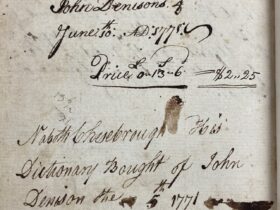 John Denisons
June 10: AD: 1771
Price 0=13=6 = $2..25
Nabth Chesebrough His
Dictionary Bought of John
Denison the 5th 1771